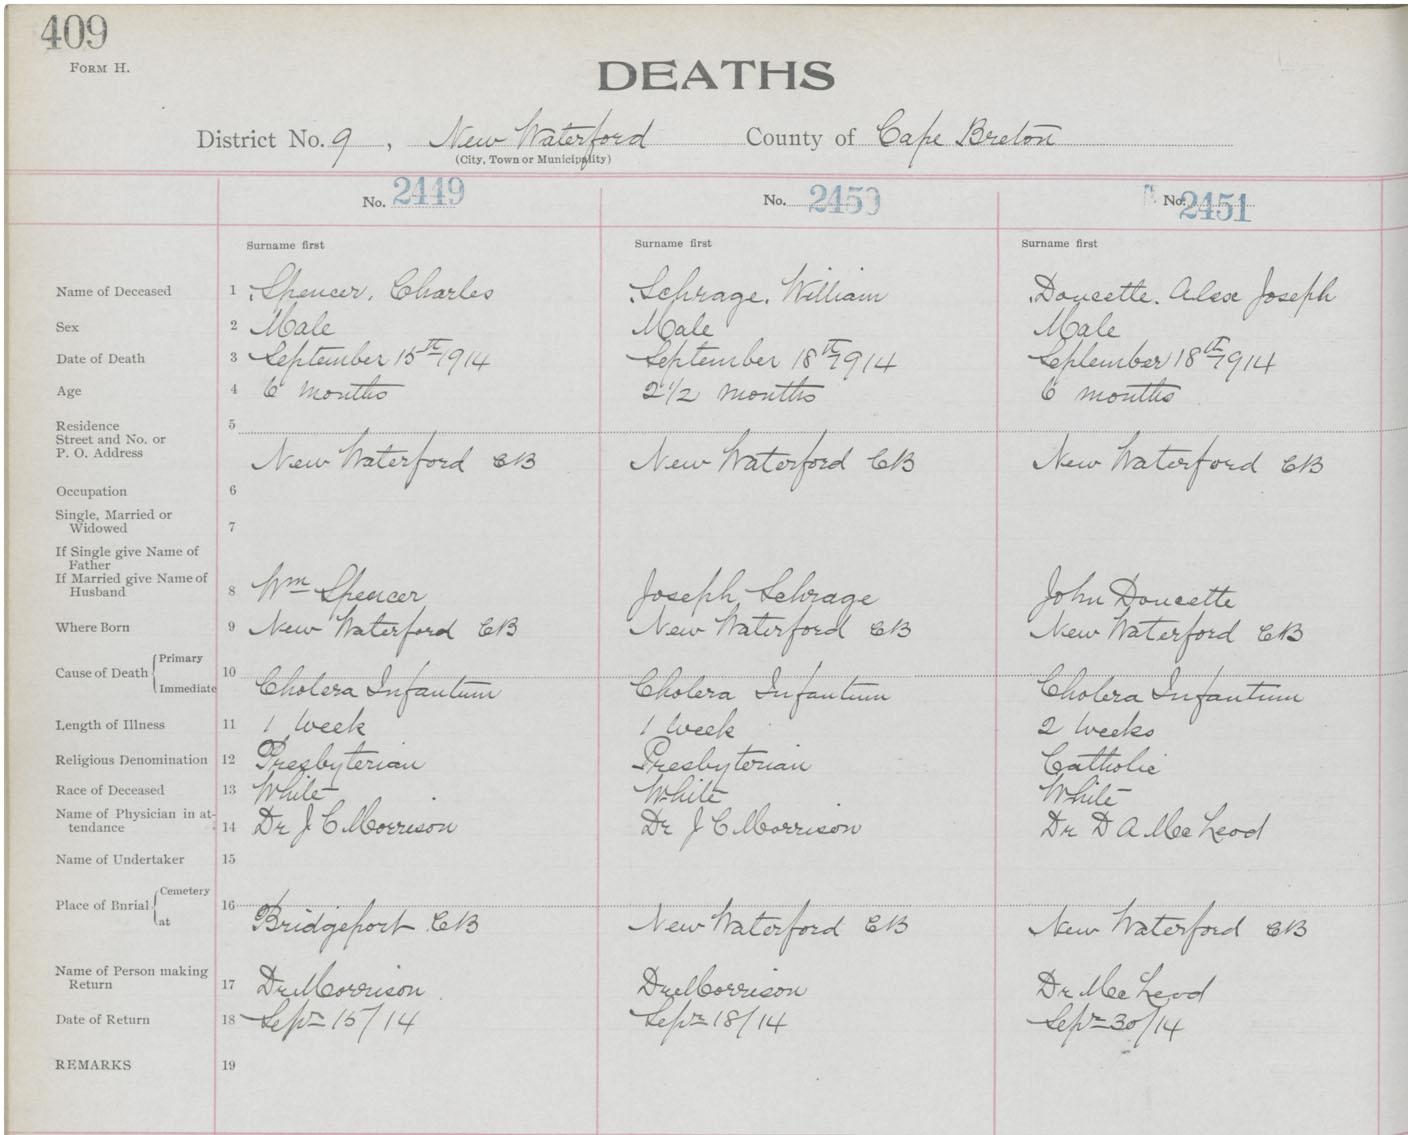 409
FORM H.
DEATHS
District No. 9, New Waterford County of Cape Breton
(City, Town or Municipality)
No. 2449 No. 2450 No. 2451
Surname first Surname first Surname first
Name of Deceased 1 Spencer, Charles Schrage, William Doucette, Alex Joseph
Sex 2 Male Male Male
Date of Death 3 September 15th 1914 September 18th 1914 September 18th 1914
Age 4 6 months 2 1/2 months 6 months
Residence 5
Street and No. or
P. O. Address New Waterford CB New Waterford CB New Waterford CB
Occupation 6
Single, Married or
Widowed 7
If Single give Name of
Father
If Married give Name of
Husband 8 Wm Spencer Joseph Schrage John Doucette
Where Born 9 New Waterford CB New Waterford CB New Waterford CB
Cause of Death Primary 10
Immediate Cholera Infantum Cholera Infantum Cholera Infantum
Length of Illness 11 1 week 1 week 2 weeks
Religious Denomination 12 Presbyterian Presbyterian Catholic
Race of Deceased 13 White White White
Name of Physician in at-
tendance 14 Dr J C Morrison Dr J C Morrison Dr D A MacLeod
Name of Undertaker 15
Place of Burial Cemetery 16
at Bridgeport CB New Waterford CB New Waterford CB
Name of Person making
Return 17 Dr Morrison Dr Morrison Dr MacLeod
Date of Return 18 Sepr 15/14 Sepr 18/14 Sepr 30/14
REMARKS 19